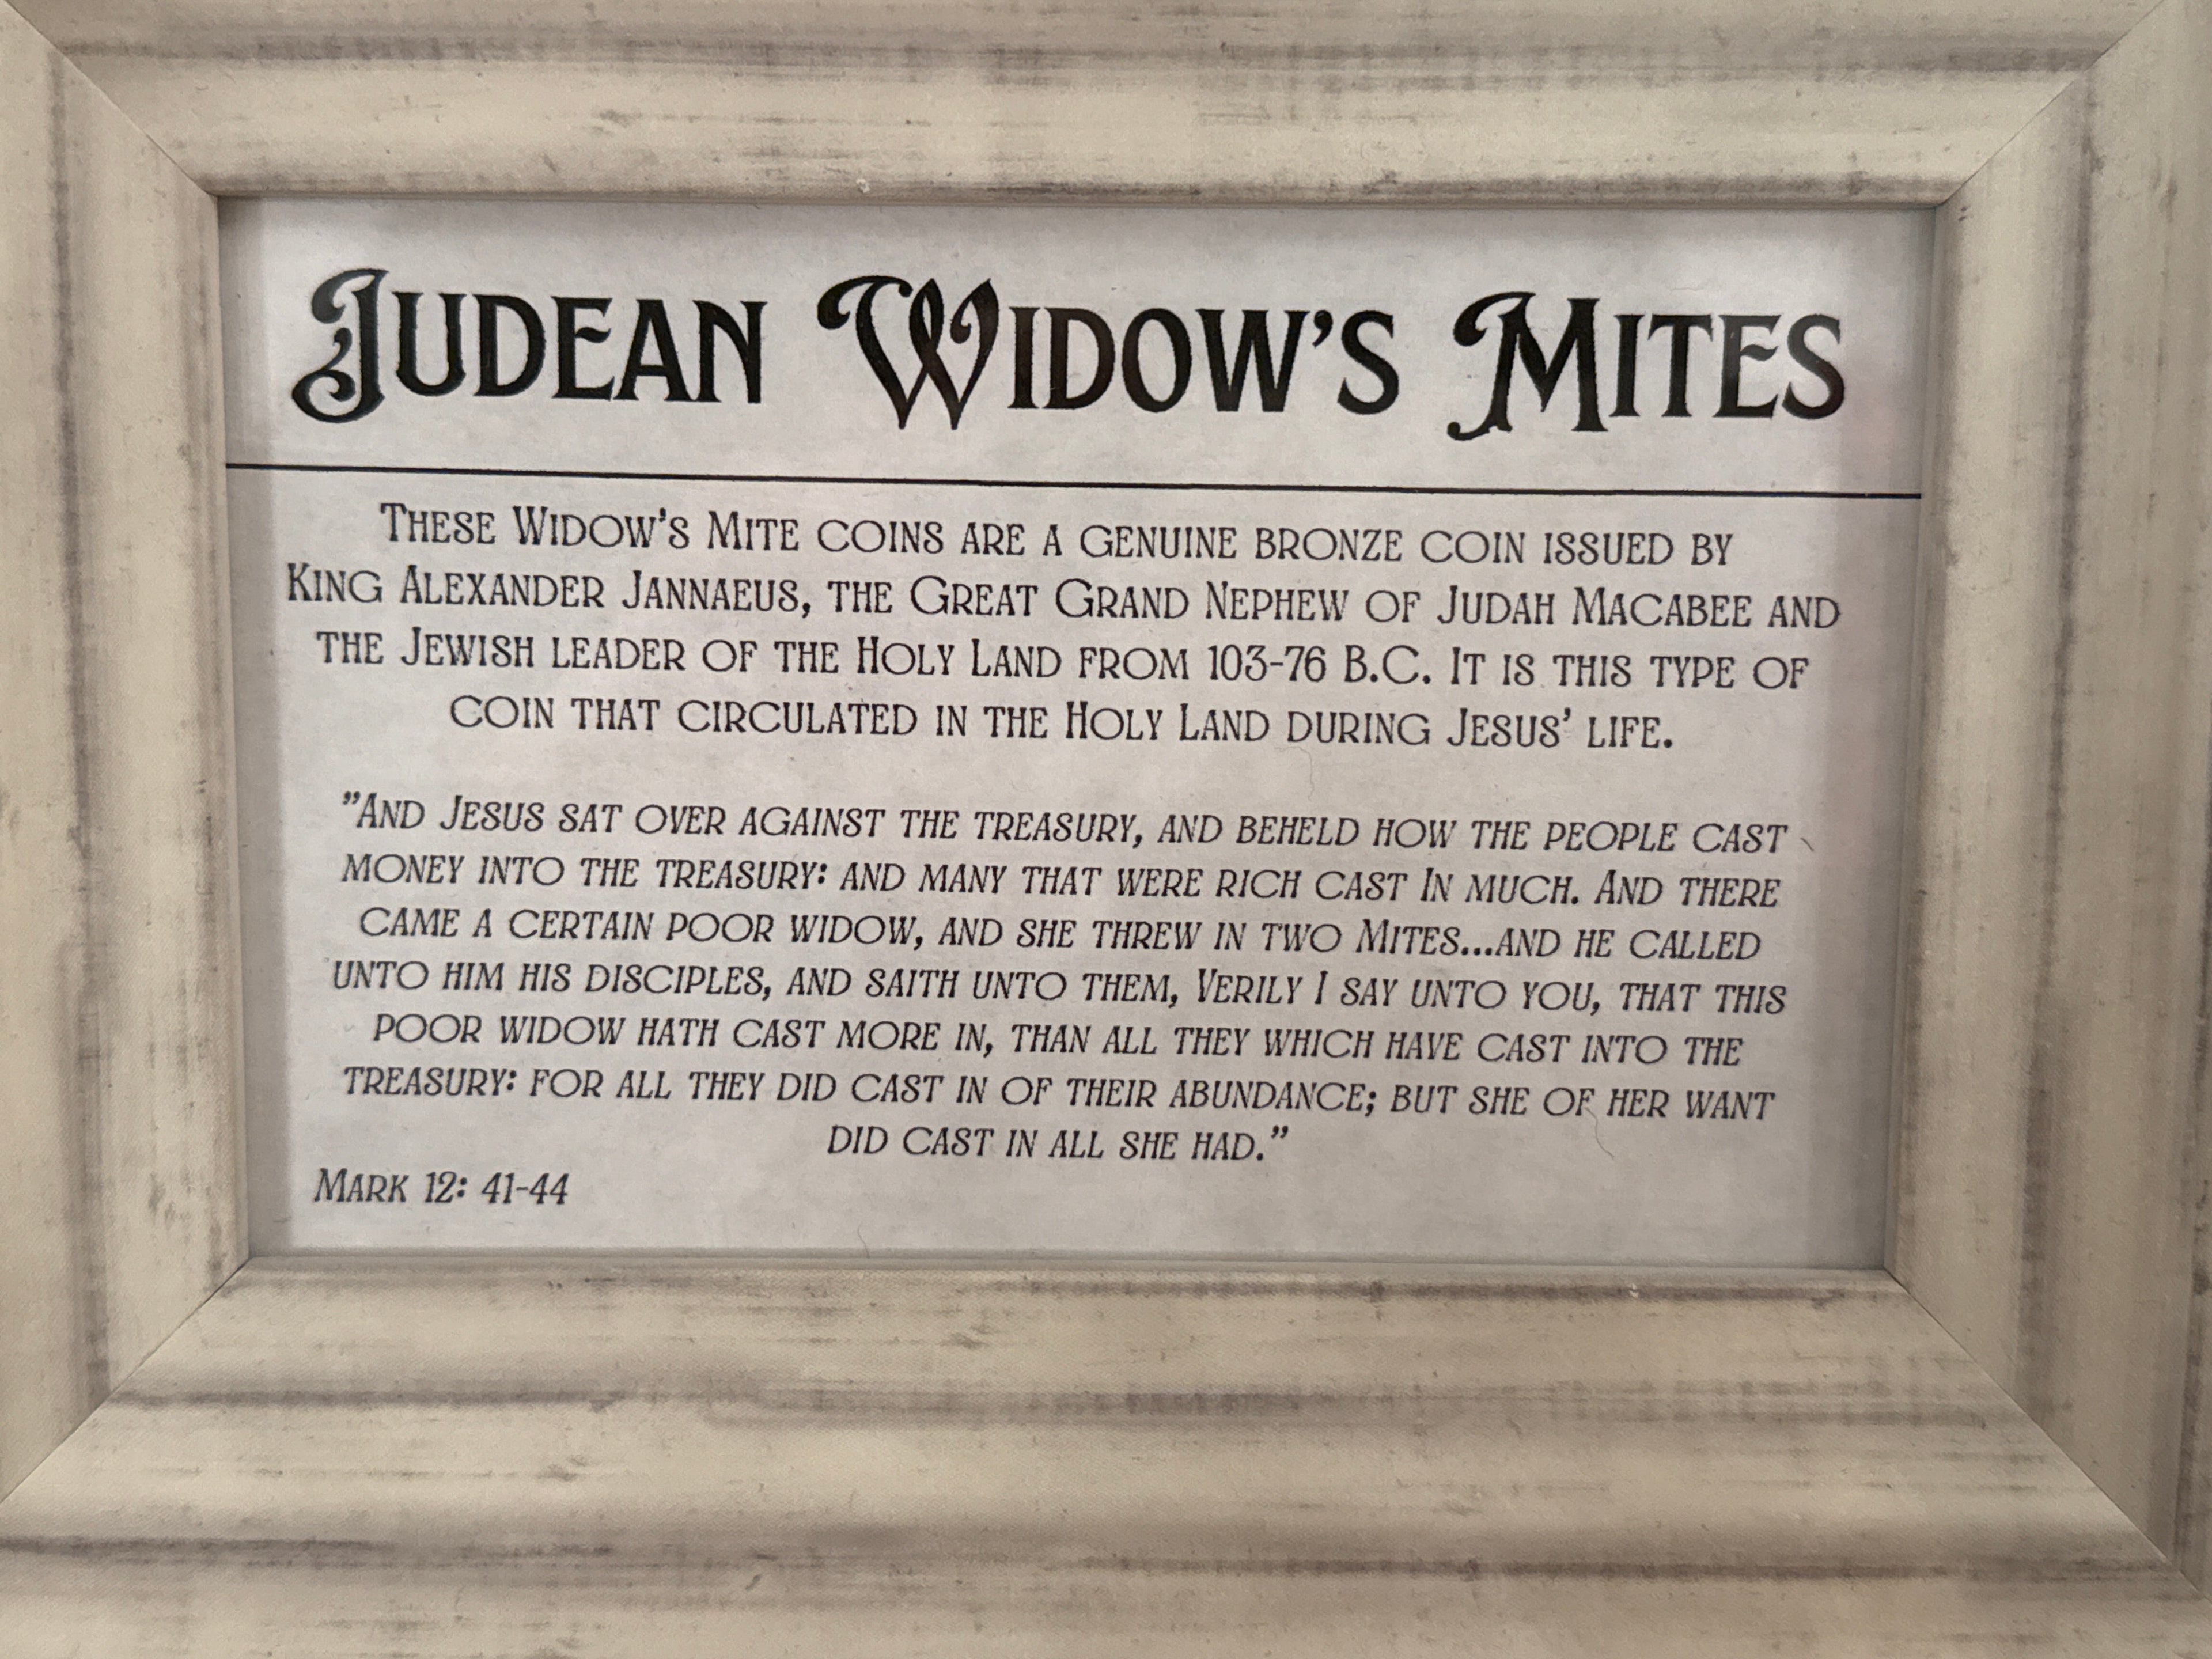 Judean Widow's Mites
These Widow's Mite coins are a genuine bronze coin issued by
King Alexander Jannaeus, the Great Grand Nephew of Judah Macabee and
the Jewish leader of the Holy Land from 103-76 B.C. It is this type of
coin that circulated in the Holy Land during Jesus' life.
"And Jesus sat over against the treasury, and beheld how the people cast
money into the treasury: and many that were rich cast In much. And there
came a certain poor widow, and she threw in two Mites...and he called
unto him his disciples, and saith unto them, Verily I say unto you, that this
poor widow hath cast more in, than all they which have cast into the
treasury: for all they did cast in of their abundance; but she of her want
did cast in all she had."
Mark 12: 41-44